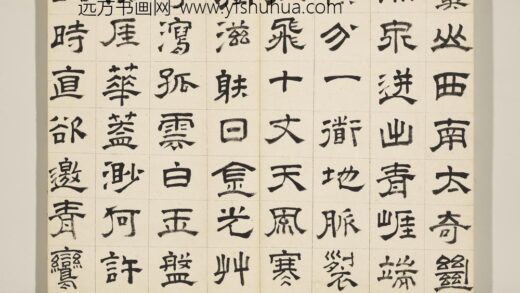 远方书画网-www.yfshuhua.com
山西南太奇
泉迸出青崕端
分一衜地脈裂
飛十丈天風寒
滋眹日金光艸
瀉孤雲白玉盤
厓華蓋渺何許
時直郤邀青鸞